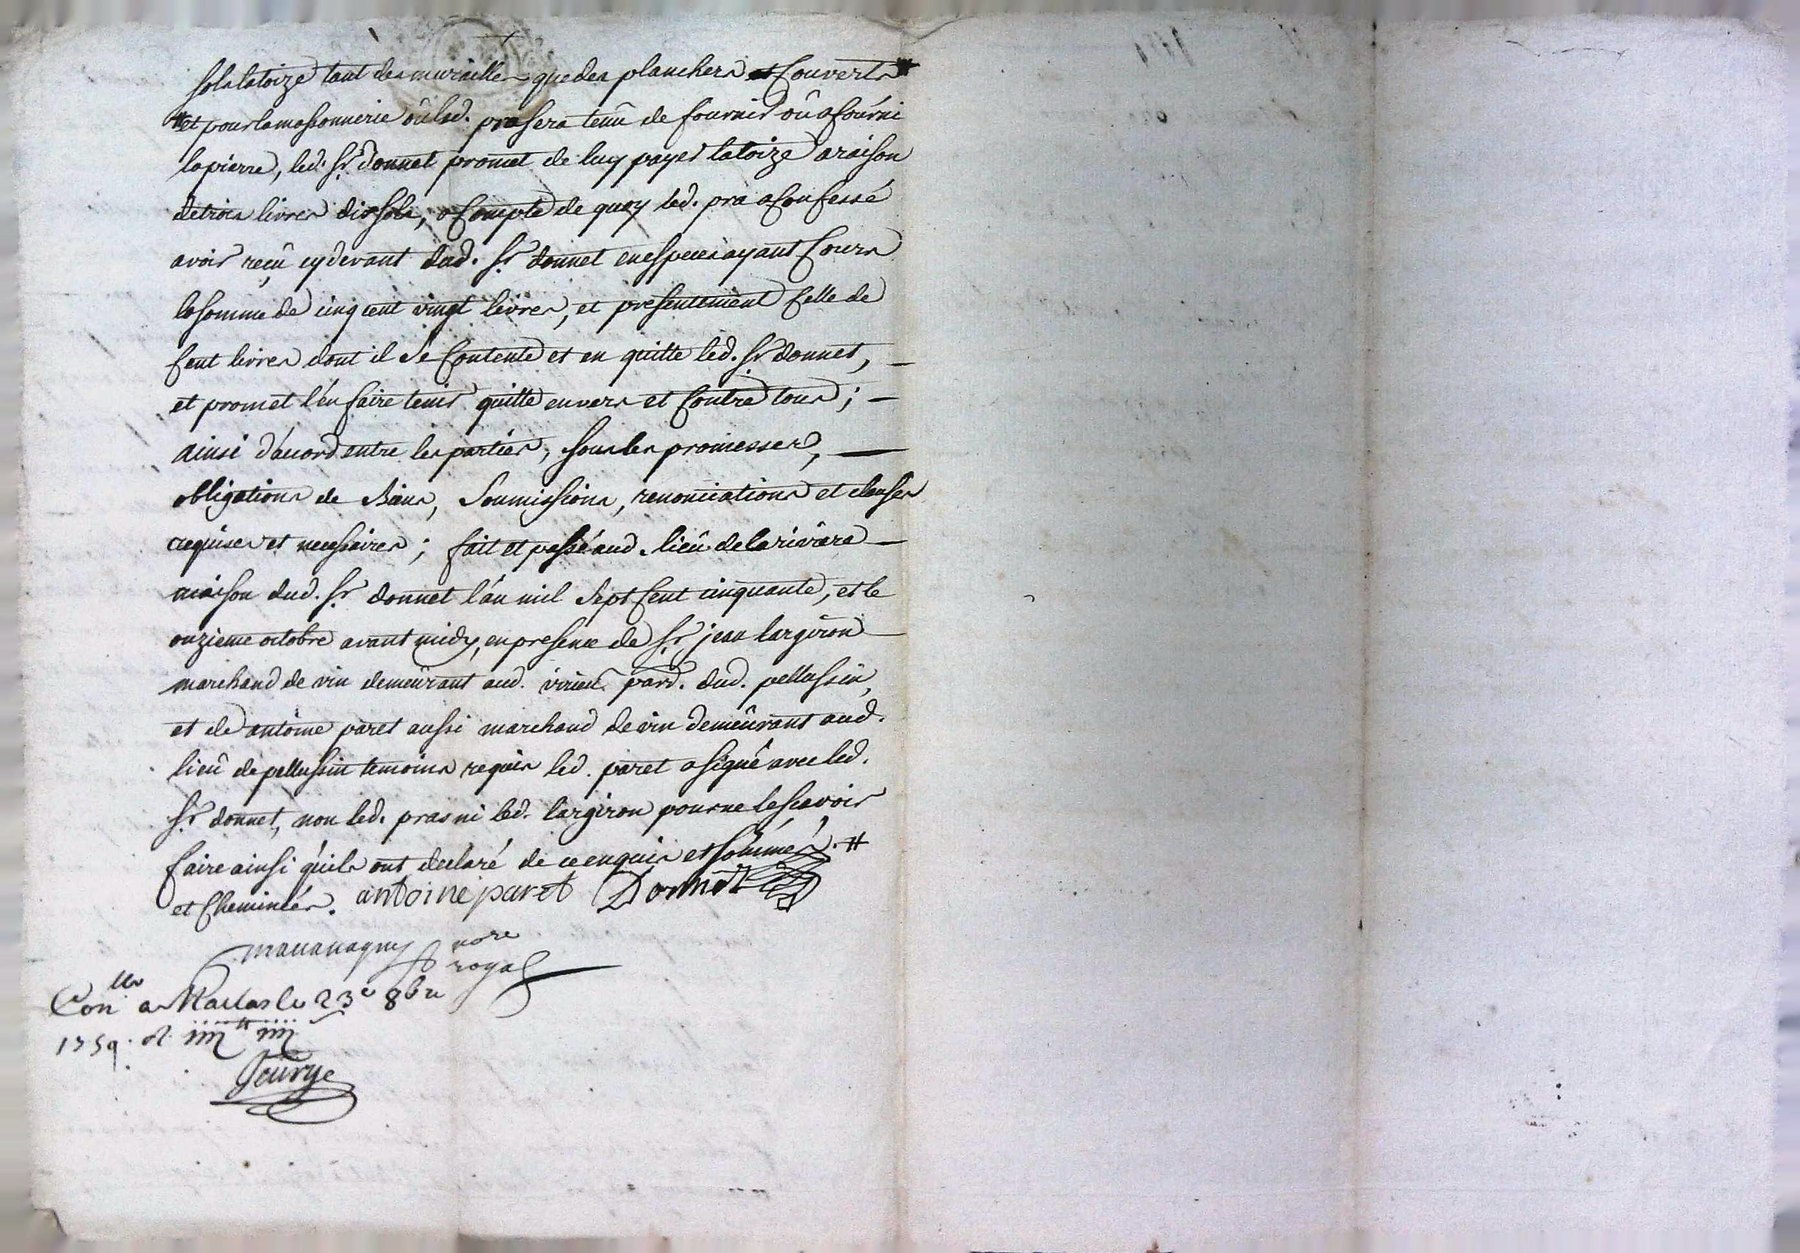 sols la toize tant des murailles que des planchers et Couverts #
et pour la massonnerie où led. pras sera tenû de fournir où a fourni
la pierre, led. Sr. donnet promet de luy payer la toize a raison
de trois livres dix sols, a Compte de quoy led. pra a Confessé
avoir reçû cy devant dud. Sr. donnet en especes ayant Cours
la somme de cinq cent vingt livres, et presentement Celle de
Cent livres dont il Se Contente et en quitte led. Sr donnet,
et promet l'en faire tenir quitte envers et Contre tous;
ainsi d'acord entre les parties, sous les promesses,
obligations de biens, Soumissions, renonciations et clauses
requises et necessaires; fait et passé aud. lieû de la rivière
maison dud. Sr. donnet l'an mil Sept Cent cinquante, et le
onzieme octobre avant midy, en presence de Sr. jean largiron
marchand de vin demeûrant aud. virieu parr. dud. pellussin,
et de antoine paret aussi marchand de vin demeûrant aud.
lieû de pellussin temoins requis led. paret a signé avec led.
Sr donnet, non led. pras ni led. largiron pour ne le sçavoir
faire ainsi qu'ils ont declaré de ce enquis et sommés. #
et Cheminées. antoine paret Donnet
nore
royal
Conlle a le 23e 8bre